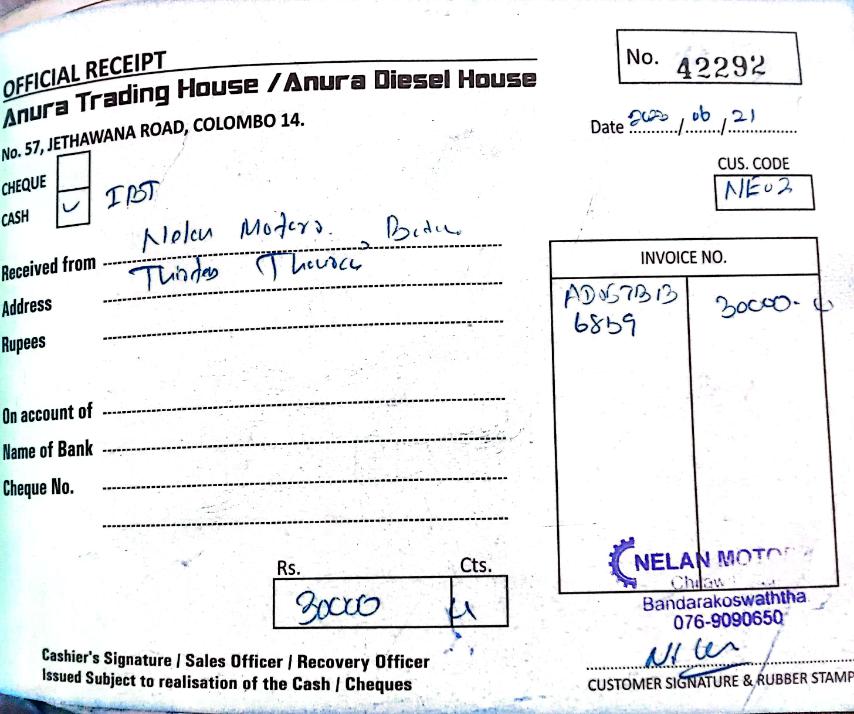 OFFICIAL RECEIPT
No. 42292
Anura Trading House / Anura Diesel House
No. 57, JETHAWANA ROAD, COLOMBO 14.
Date / 06 / 21
CUS. CODE
CHEQUE
CASH IBT
Received from Nelan Motors.
Address
Rupees
INVOICE NO.
30000
On account of
Name of Bank
Cheque No.
Rs. Cts.
30000
NELAN
Chilaw
Bandarakoswaththa
076-9090650
Cashier's Signature / Sales Officer / Recovery Officer
Issued Subject to realisation of the Cash / Cheques
CUSTOMER SIGNATURE & RUBBER STAMP